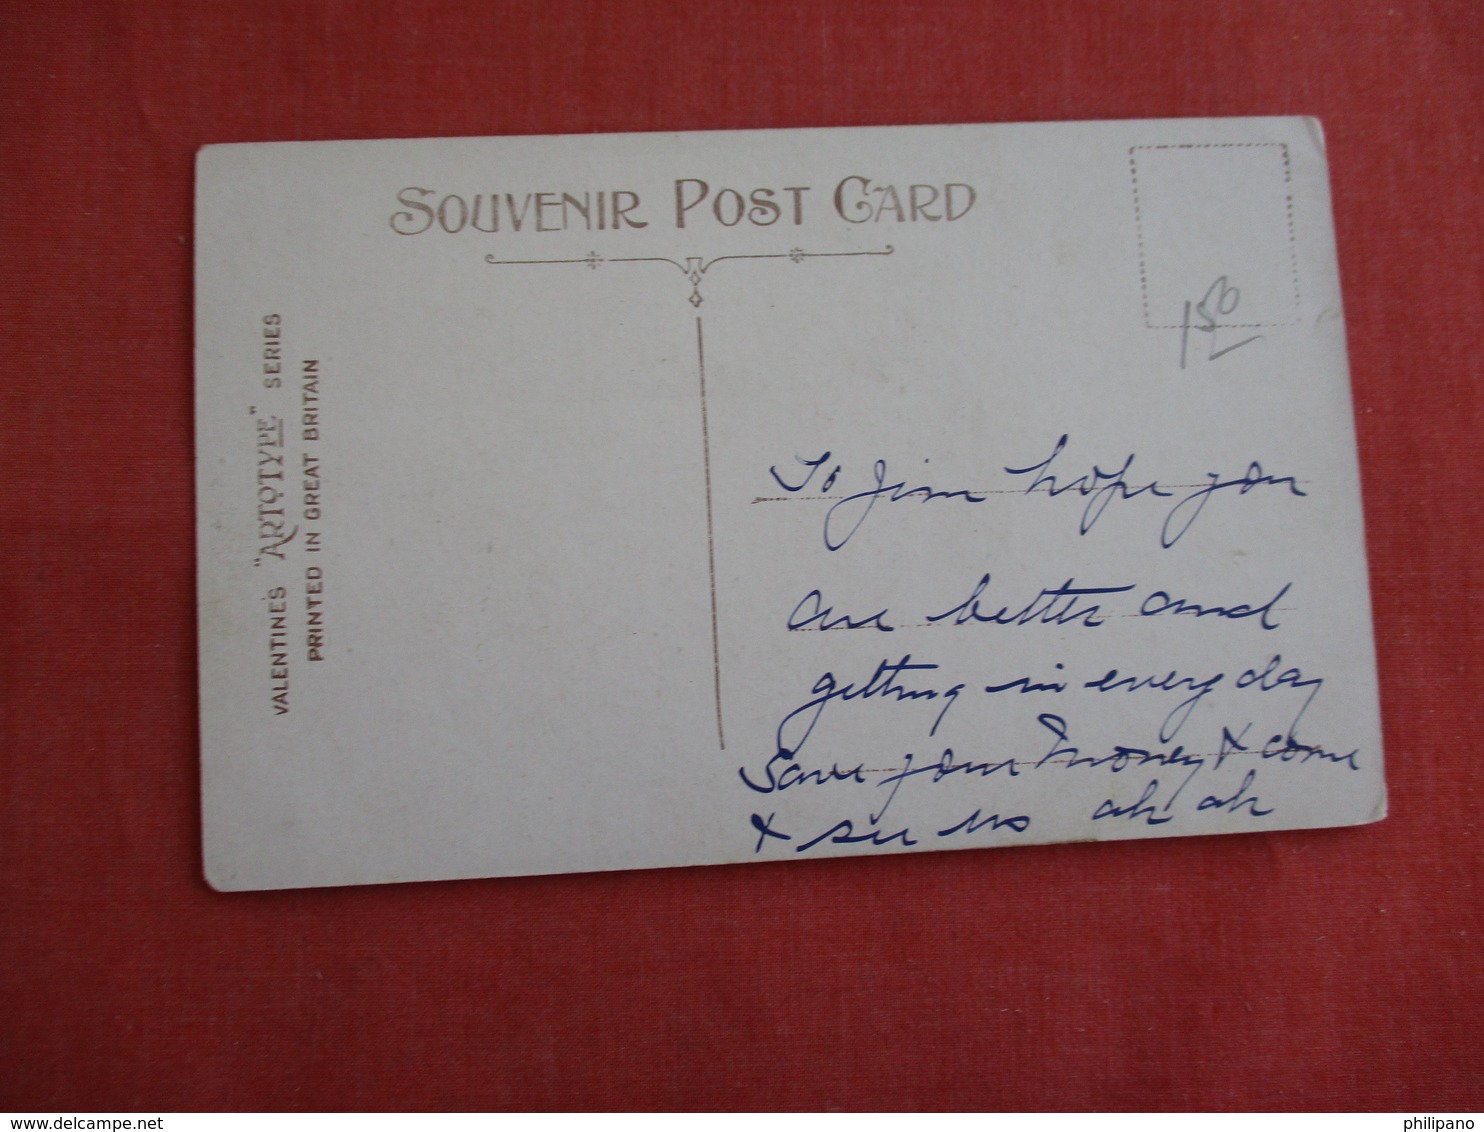 SOUVENIR POST CARD
VALENTINE'S "ARTOTYPE" SERIES
PRINTED IN GREAT BRITAIN
150
To Jim hope you
are better and
getting in every day
Save your money & come
& see us ah ah
philipano